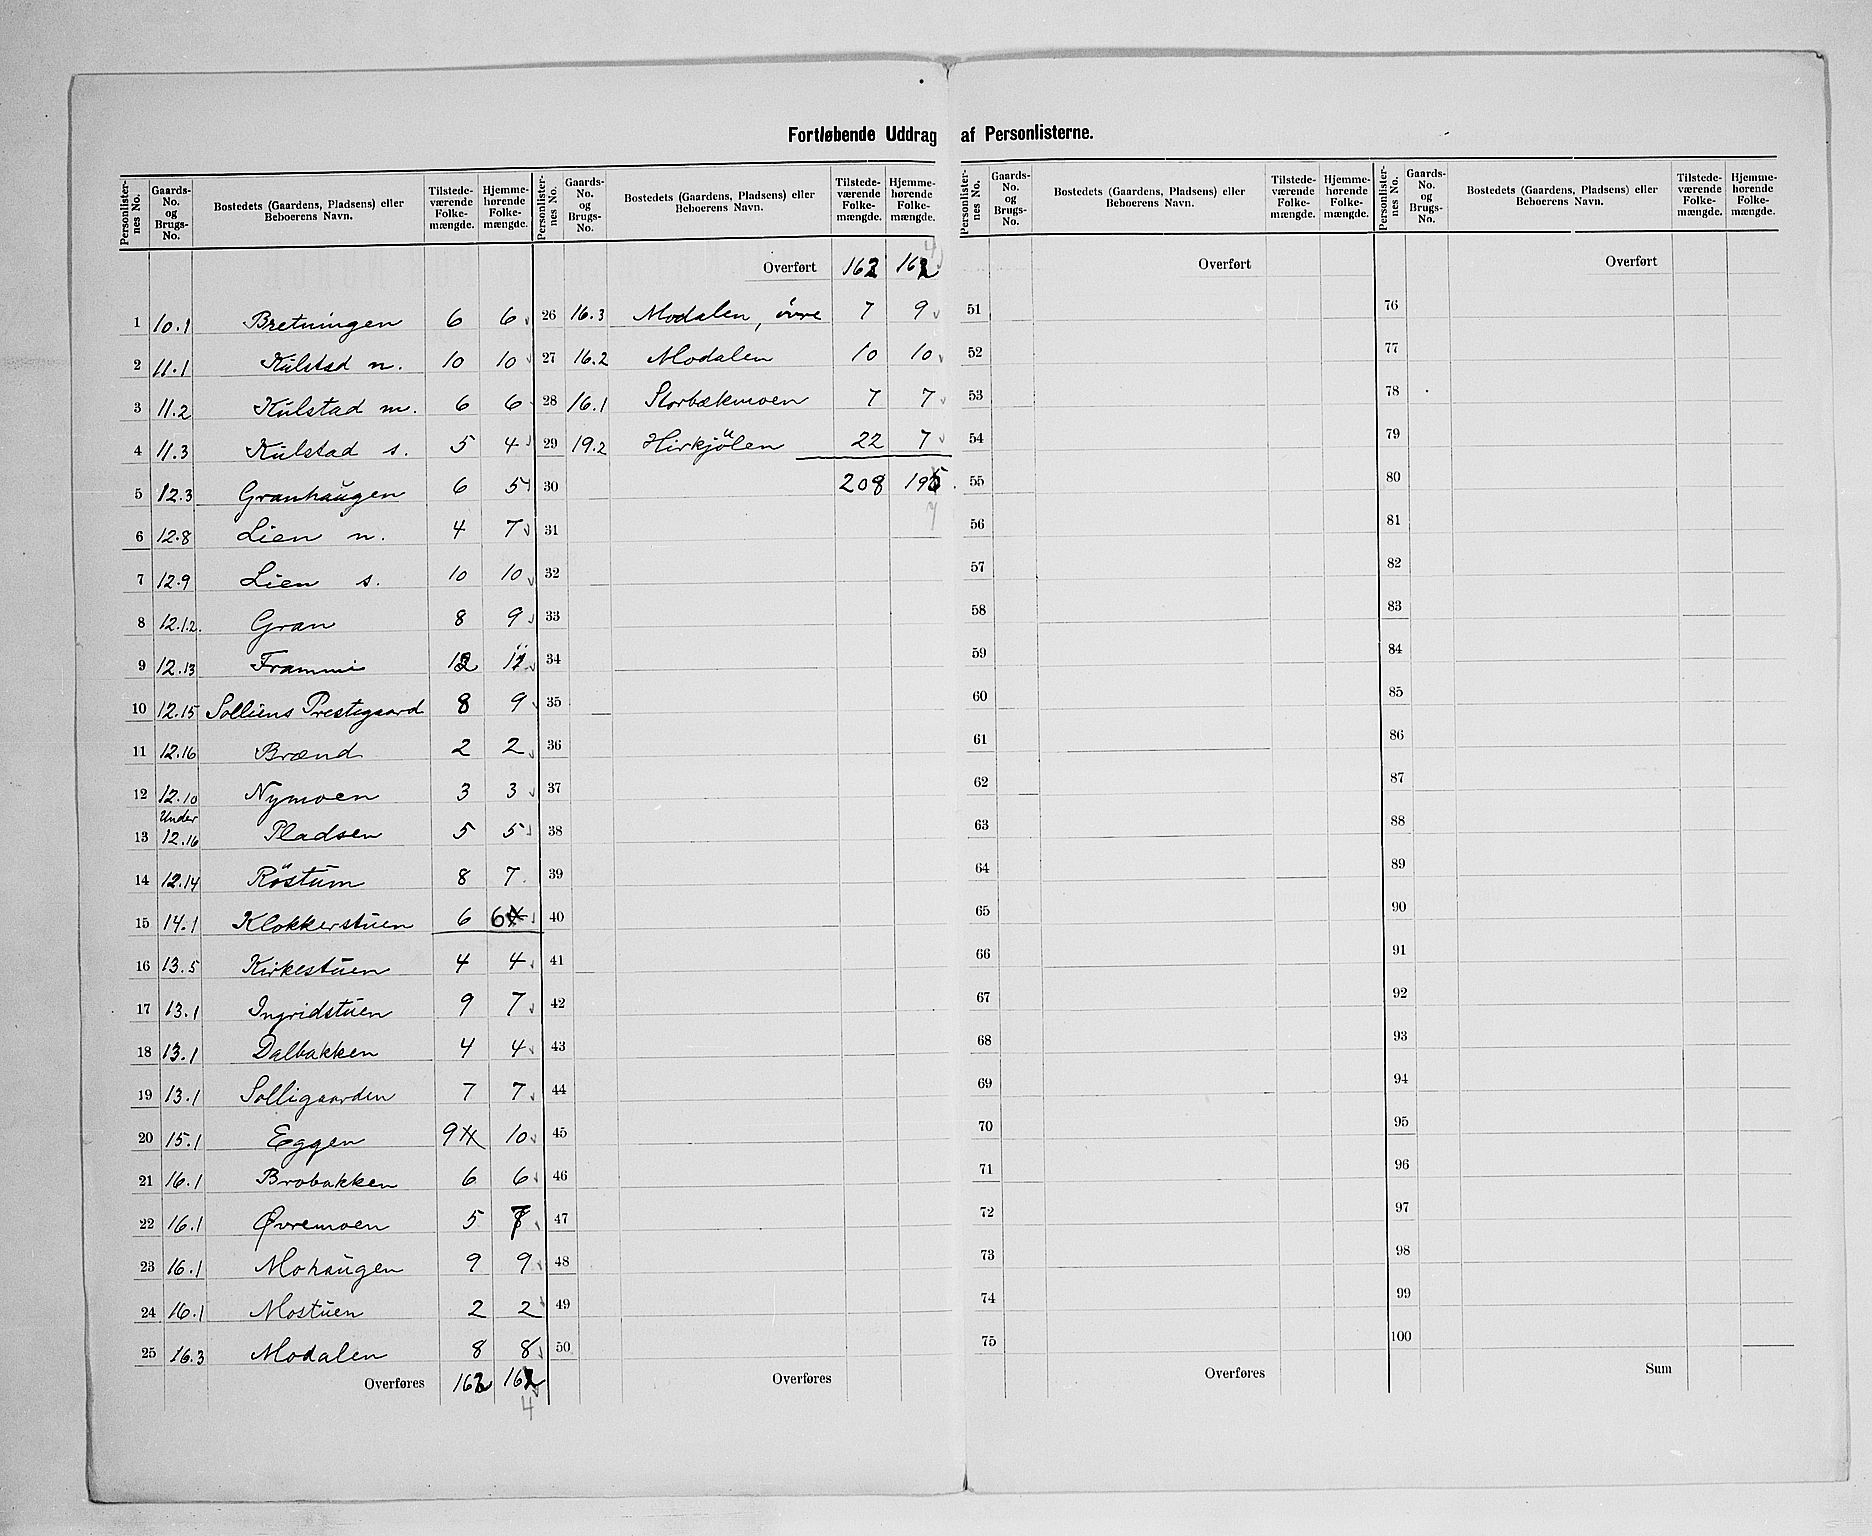 Fortløbende Uddrag af Personlisterne.
Personlister-nes No. Gaards-No. og Brugs-No. Bostedets (Gaardens, Pladsens) eller Beboerens Navn. Tilstede-værende Folke-mængde. Hjemme-hørende Folke-mængde.
1 10.1 Bretningen 6 6
2 11.1 Kulstad n. 10 10
3 11.2 Kulstad m. 6 6
4 11.3 Kulstad s. 5 4
5 12.3 Granhaugen 6 5
6 12.8 Lien n. 4 7
7 12.9 Lien s. 10 10
8 12.12. Gran 8 9
9 12.13 Frammi 12 11
10 12.15 Solliens Prestegaard 8 9
11 12.16 Brænd 2 2
12 12.10 Nymoen 3 3
13 Under 12.16 Pladsen 5 5
14 12.14 Röstum 8 7
15 14.1 Klokkerstuen 6 6
16 13.5 Kirkestuen 4 4
17 13.1 Ingridstuen 9 7
18 13.1 Dalbakken 4 4
19 13.1 Solligaarden 7 7
20 15.1 Eggen 9 10
21 16.1 Brobakken 6 6
22 16.1 Øvremoen 5 7
23 16.1 Mohaugen 9 9
24 16.1 Mostuen 2 2
25 16.3 Modalen 8 8
Overføres 162 162
4
Personlister-nes No. Gaards-No. og Brugs-No. Bostedets (Gaardens, Pladsens) eller Beboerens Navn. Tilstede-værende Folke-mængde. Hjemme-hørende Folke-mængde.
4
Overført 162 162
26 16.3 Modalen, övre 7 9
27 16.2 Modalen 10 10
28 16.1 Storbækmoen 7 7
29 19.2 Hirkjölen 22 7
30 208 195
7
31
32
33
34
35
36
37
38
39
40
41
42
43
44
45
46
47
48
49
50
Overføres
Personlister-nes No. Gaards-No. og Brugs-No. Bostedets (Gaardens, Pladsens) eller Beboerens Navn. Tilstede-værende Folke-mængde. Hjemme-hørende Folke-mængde.
Overført
51
52
53
54
55
56
57
58
59
60
61
62
63
64
65
66
67
68
69
70
71
72
73
74
75
Overføres
Personlister-nes No. Gaards-No. og Brugs-No. Bostedets (Gaardens, Pladsens) eller Beboerens Navn. Tilstede-værende Folke-mængde. Hjemme-hørende Folke-mængde.
Overført
76
77
78
79
80
81
82
83
84
85
86
87
88
89
90
91
92
93
94
95
96
97
98
99
100
Sum